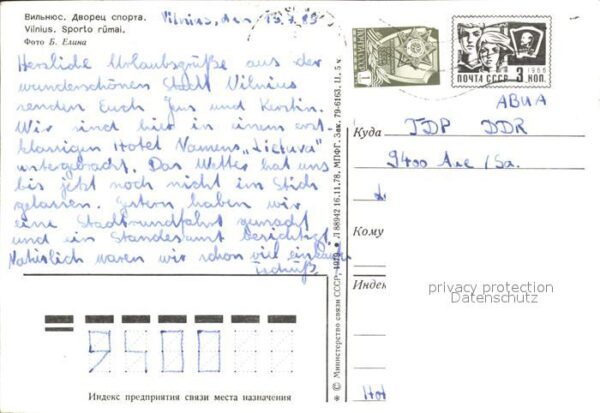 Вильнюс. Дворец спорта.
Vilnius. Sporto rūmai.
Фото Б. Елина
Vilnius, den 15.7.89
Herzliche Urlaubsgrüße aus der
wunderschönen Stadt Vilnius
senden Euch Jens und Kerstin.
Wir sind hier in einem erst
klassigen Hotel Namens "Lietuva"
untergebracht. Das Wetter hat uns
bis jetzt noch nicht im Stich
gelassen. Gestern haben wir
eine Stadtrundfahrt gemacht
und ein Standesamt besichtigt.
Natürlich waren wir schon viel einkaufen
Tschüß
Индекс предприятия связи места назначения
9400
* © Министерство связи СССР, 1979 * Л 88942 16.11.78. МПФГ. Зак. 79-6163. ц. 5 к
1
ПОЧТА СССР 3 КОП.
1966
АВИА
Куда ГДР DDR
9400 Aue/Sa.
Кому
Индекс
privacy protection
Datenschutz